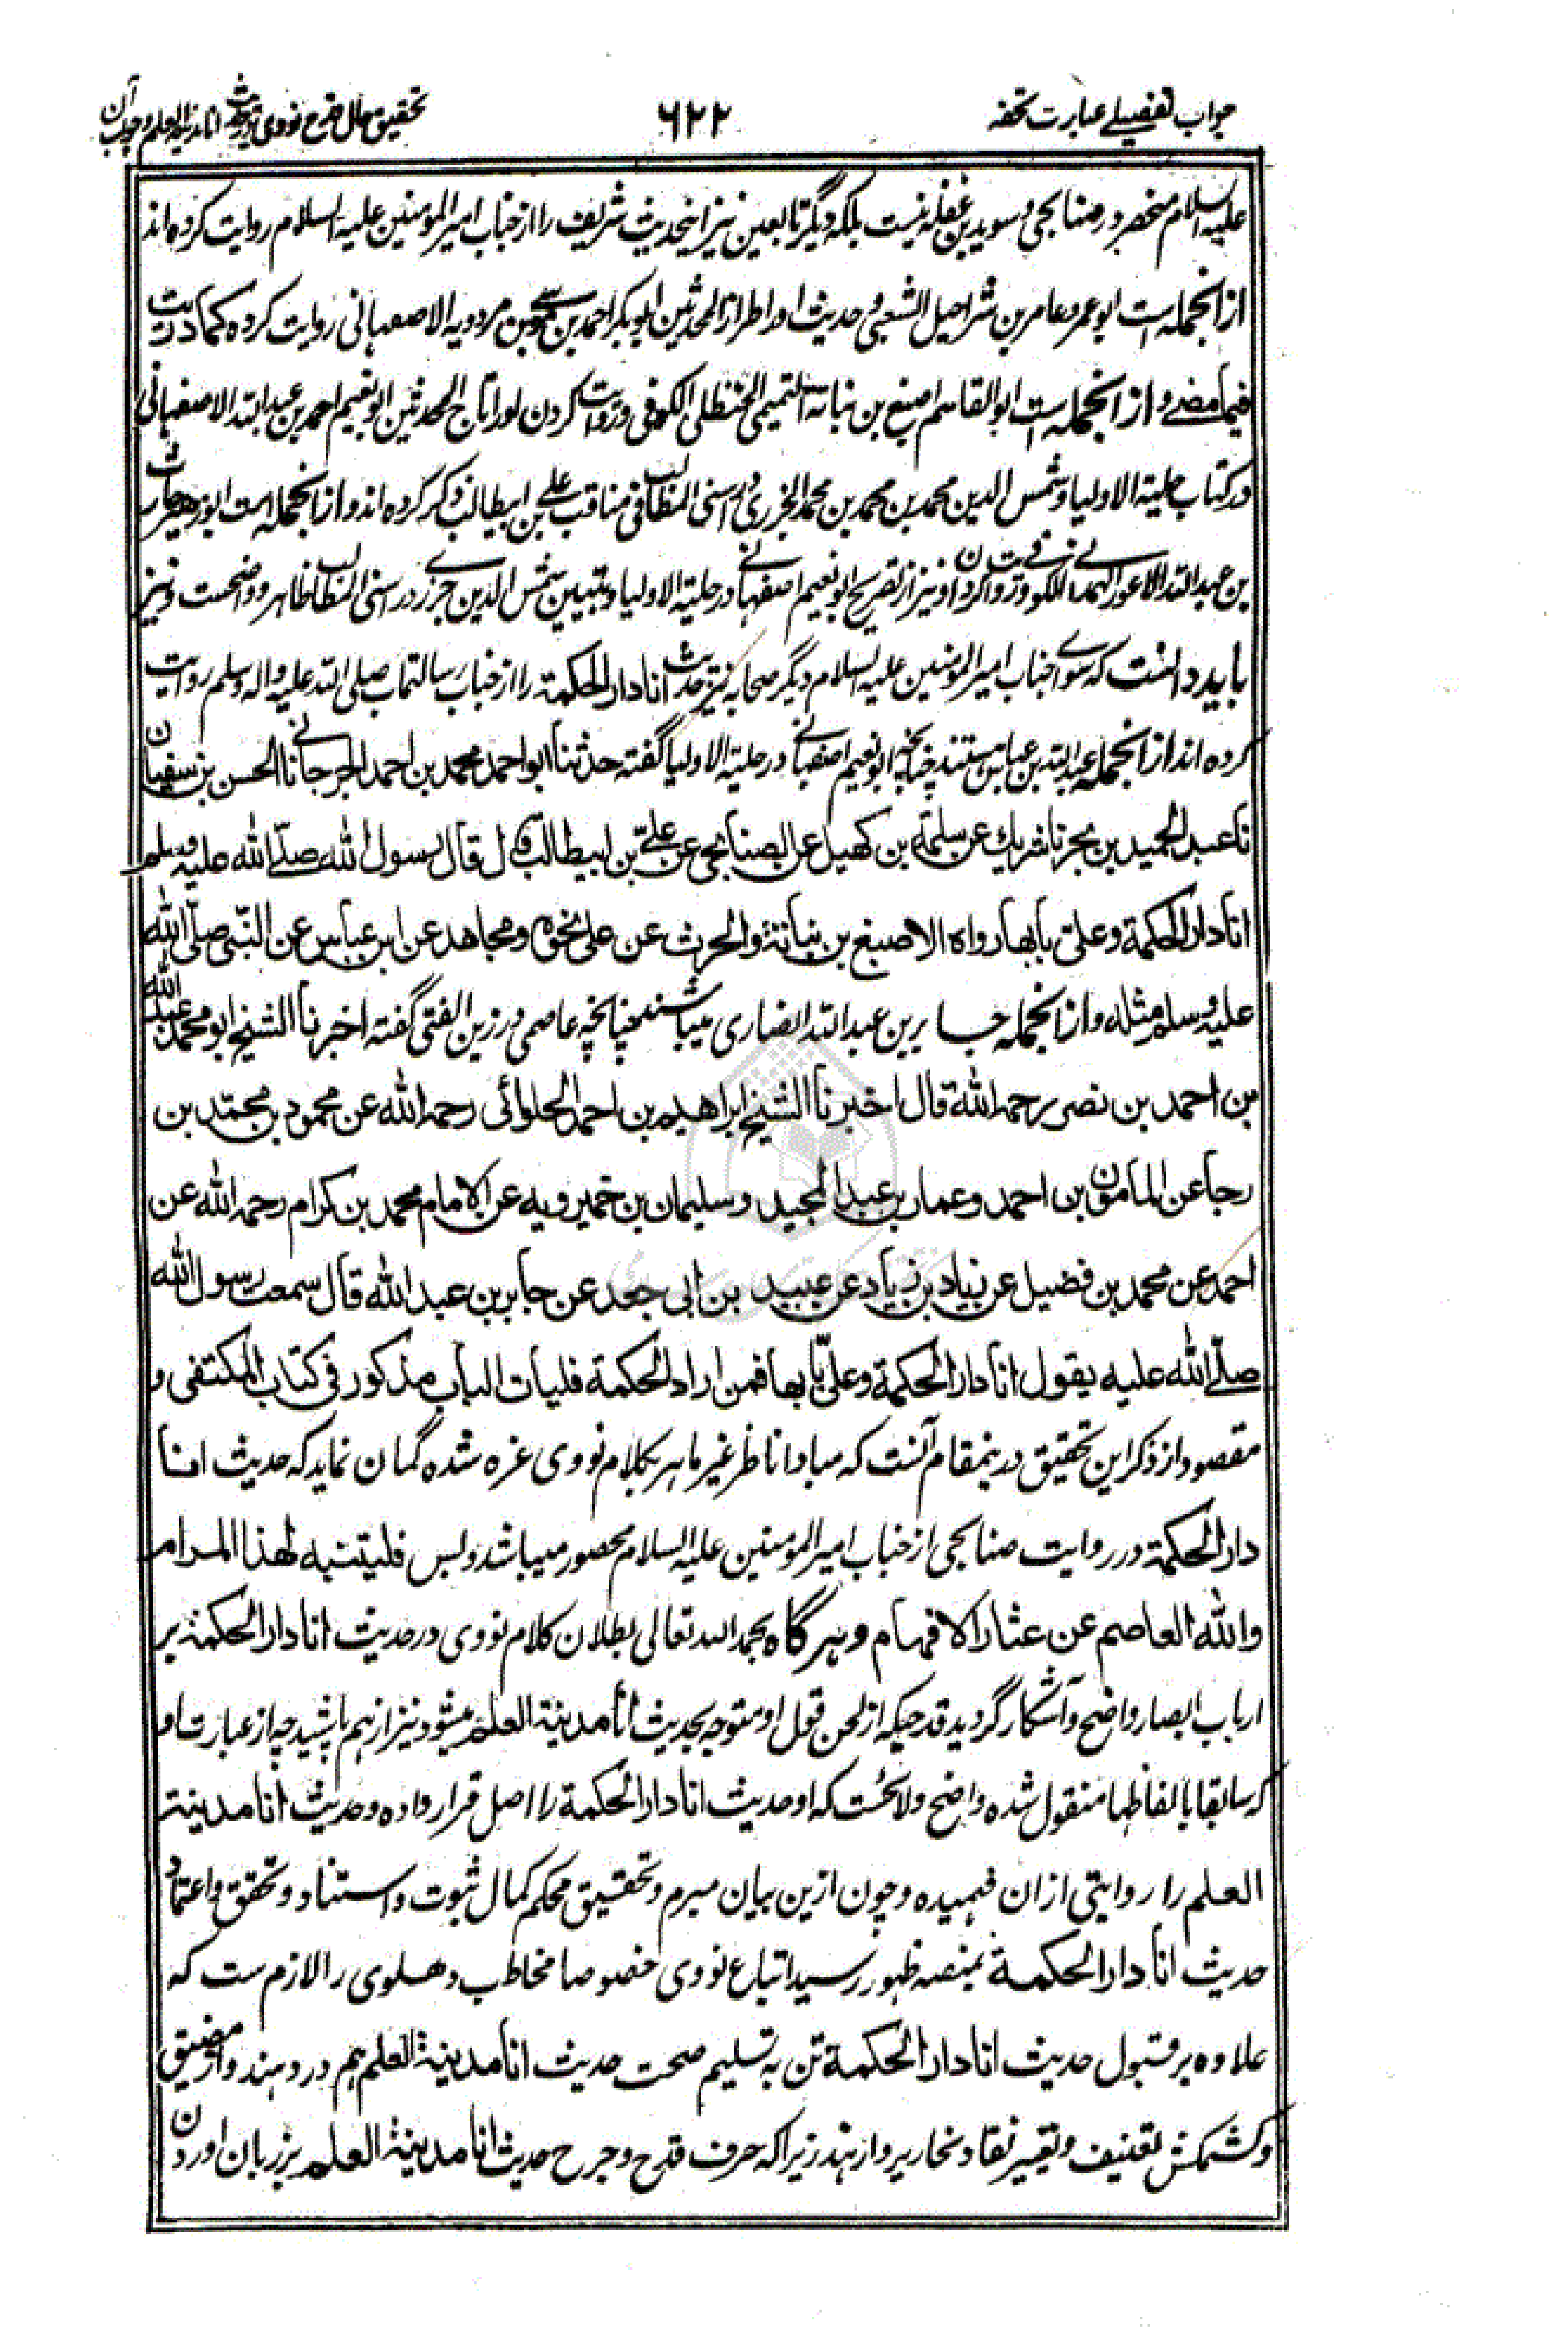 جواب تفصیلے عبارت تحفہ
۶۲۲
تحقیق حال قدح نووی در حدیث انا مدینة العلم و جواب آن
علیه السلام منحصر در صنابحی و سوید بن غفله نیست بلکه دیگر تابعین نیز اینحدیث شریف را از جناب امیر المومنین علیه السلام روایت کرده اند
از انجمله است ابو عمرو عامر بن شراحیل الشعبی و حدیث او را طراز المحدثین ابو بکر احمد بن موسے بن مردویه الاصبهانی روایت کرده کما دریت
فیما مضے و از انجمله است ابو القاسم اصبغ بن نباتة التمیمی الحنظلی الکوفی و روایت کردن او را تاج المحدثین ابو نعیم احمد بن عبد الله الاصفهانی
در کتاب حلیة الاولیا و شمس الدین محمد بن محمد بن محمد الجزری در اسنی المطالب فی مناقب علی بن ابیطالب ذکر کرده اند و از انجمله است ابو زهیر حارث
بن عبد الله الاعور الهمدانے الکوفے و روایت کردن او نیز از تصریح ابو نعیم اصفهانے در حلیة الاولیا و تبیین شمس الدین جزرے در اسنی المطالب ظاهر و واضحست و نیز
باید دانست که سوای جناب امیر المومنین علیه السلام دیگر صحابه نیز حدیث انا دار الحکمة را از جناب رسالتماب صلی الله علیه و اله و سلم روایت
کرده اند از انجمله عبد الله بن عباس ستند چنانچه ابو نعیم اصفهانے در حلیة الاولیا گفته حدثنا ابو احمد محمد بن احمد الجرجانے نا الحسن بن سفیان
نا عبد الحمید بن بحر نا شریك عن سلمة بن كهیل عن الصنابحی عن علیّ بن ابیطالب قال قال رسول الله صلّے الله علیه وسلم
انا دار الحکمة وعلیّ بابها رواه الاصبغ بن نباتة والحرث عن علی نحوه ومجاهد عن ابن عباس عن النّبی صلّی الله
علیه وسلم مثله و از انجمله جابر بن عبد الله انصاری میباشند چنانچه عاصمی در زین الفتی گفته اخبرنا الشیخ ابو محمد عبد الله
بن احمد بن نصر رحمه الله قال اخبرنا الشیخ ابراهیم بن احمد الحلوائی رحمه الله عن محمود بن محمد بن
رجا عن المامون بن احمد وعمار بن عبد المجید وسلیمان بن خمیرویه عن الامام محمد بن کرام رحمه الله عن
احمد عن محمد بن فضیل عن زیاد بن زیاد عن عبید بن ابی جعد عن جابر بن عبد الله قال سمعت رسول الله
صلّے الله علیه یقول انا دار الحکمة وعلیّ بابها فمن اراد الحکمة فلیات الباب مذکور فی کتاب المکتفی و
مقصود از ذکر این تحقیق درینمقام آنست که مبادا ناظر غیر ماهر بکلام نووی غره شده گمان نماید که حدیث انا
دار الحکمة در روایت صنابحی از جناب امیر المومنین علیه السلام محصور میباشد و بس فلیتنبه لهذا المرام
والله العاصم عن عثار الافهام و هرگاه بحمد الله تعالی بطلان کلام نووی در حدیث انا دار الحکمة بر
ارباب ابصار واضح و آشکار گردید قدحیکه از لحن قول او متوجه بحدیث انا مدینة العلم میشود نیز از هم پاشید چه از عبارت او
که سابقا بالفاظها منقول شده واضح و لائحست که او حدیث انا دار الحکمة را اصل قرار داده و حدیث انا مدینة
العلم را روایتی ازان فهمیده و چون ازین بیان مبرم و تحقیق محکم کمال ثبوت و استناد و تحقق و اعتماد
حدیث انا دار الحکمة بمنصه ظهور رسید اتباع نووی خصوصا مخاطب دهلوی را لازم ست که
علاوه بر قبول حدیث انا دار الحکمة تن به تسلیم صحت حدیث انا مدینة العلم هم در دهند و از مضیق
و کشمکش تعنیف و تعییر نقاد نحاریر وارهند زیرا که حرف قدح و جرح حدیث انا مدینة العلم بر زبان اوردن